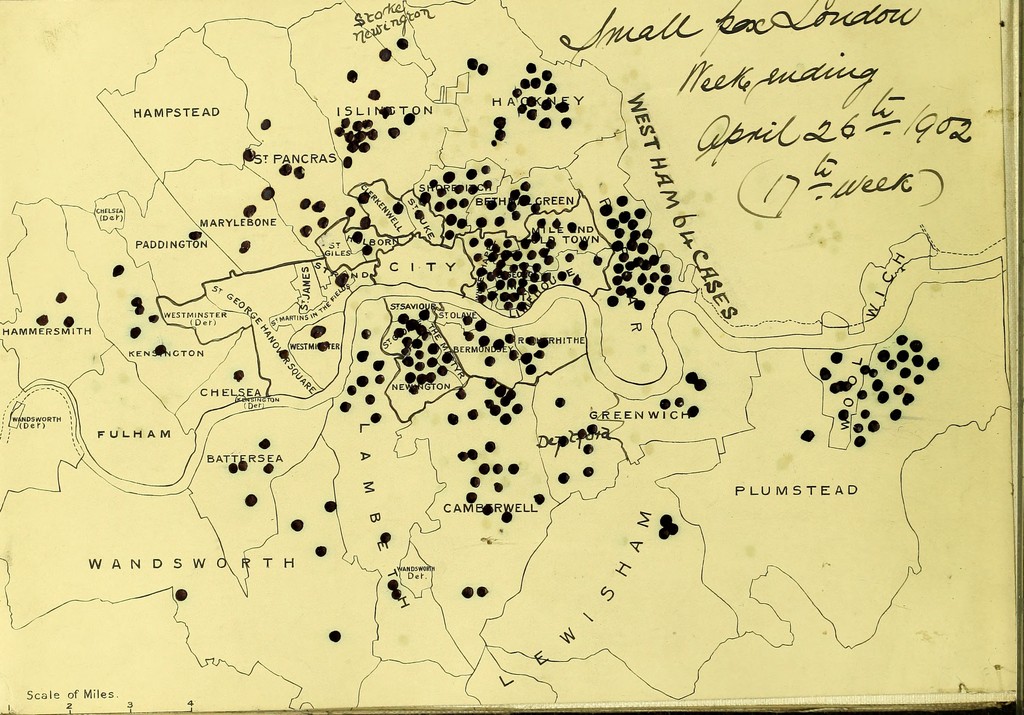 Small pox London
Week ending
April 26th 1902
(17th week)
Stoke
Newington
HAMPSTEAD
ISLINGTON
HACKNEY
WEST HAM 64 CASES
ST PANCRAS
SHOREDITCH
CLERKENWELL
ST LUKE
BETHNAL GREEN
CHELSEA
(Det)
MARYLEBONE
PADDINGTON
ST
GILES
HOLBORN
MILE END
OLD TOWN
CITY
STRAND
ST JAMES
ST MARTINS IN THE FIELDS
ST GEORGE HANOVER SQUARE
WESTMINSTER
(Det)
LIMEHOUSE
POPLAR
WOOLWICH
HAMMERSMITH
KENSINGTON
WESTMINSTER
ST SAVIOUR
ST OLAVE
THE MARTYR
BERMONDSEY
ROTHERHITHE
NEWINGTON
CHELSEA
KENSINGTON
(Det)
WANDSWORTH
(Det)
FULHAM
GREENWICH
Deptford
BATTERSEA
LAMBETH
CAMBERWELL
PLUMSTEAD
WANDSWORTH
WANDSWORTH
Det.
LEWISHAM
Scale of Miles.
1 2 3 4